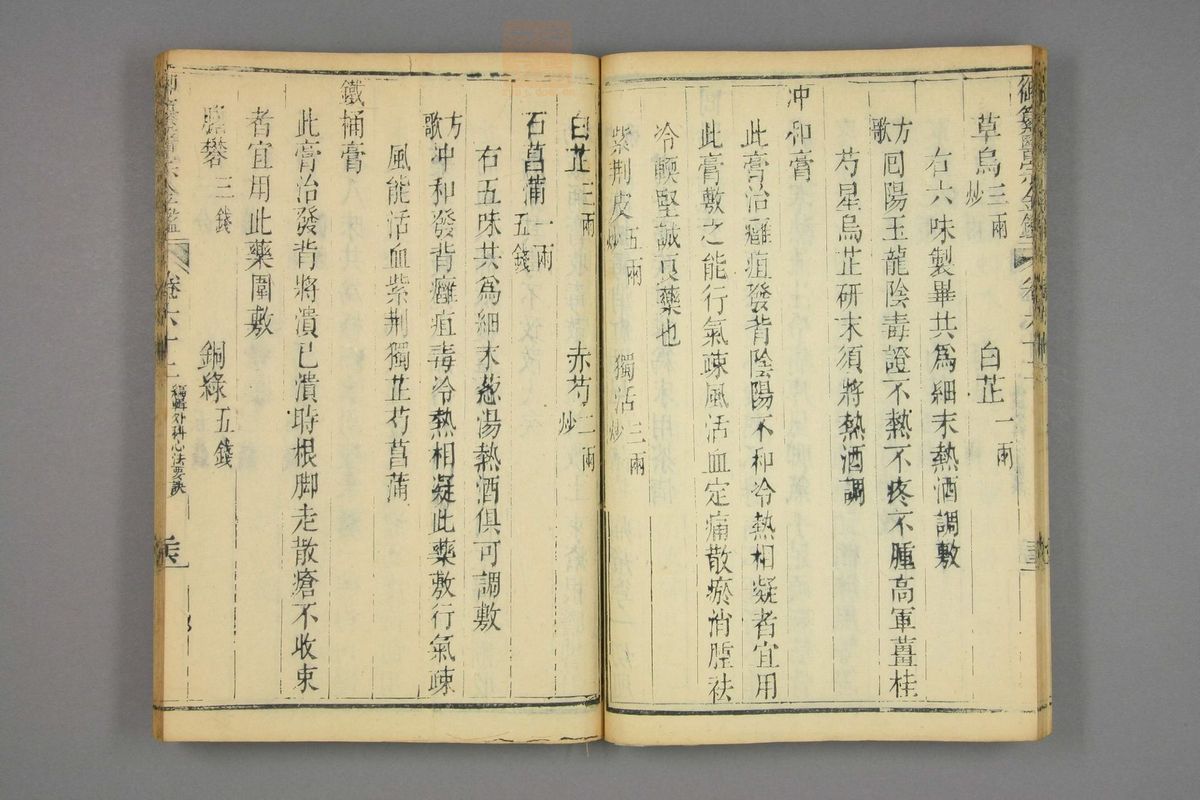 草烏三兩炒 白芷一兩
右六味製畢共爲細末熱酒調敷
方歌 囘陽玉龍陰毒證不熱不疼不腫高軍薑桂
芍星烏芷研末須將熱酒調
冲和膏
此膏治癰疽發背陰陽不和冷熱相凝者宜用
此膏敷之能行氣疎風活血定痛散瘀消腫祛
冷輭堅誠良藥也
紫荆皮五兩炒 獨活三兩炒
白芷三兩 赤芍二兩炒
石菖蒲一兩五錢
右五味共爲細末葱湯熱酒俱可調敷
方歌 冲和發背癰疽毒冷熱相凝此藥敷行氣疎
風能活血紫荆獨芷芍菖蒲
鐵桶膏
此膏治發背將潰已潰時根脚走散瘡不收束
者宜用此藥圍敷
膽礬三錢 銅綠五錢
卷六十二 編輯外科心法要訣